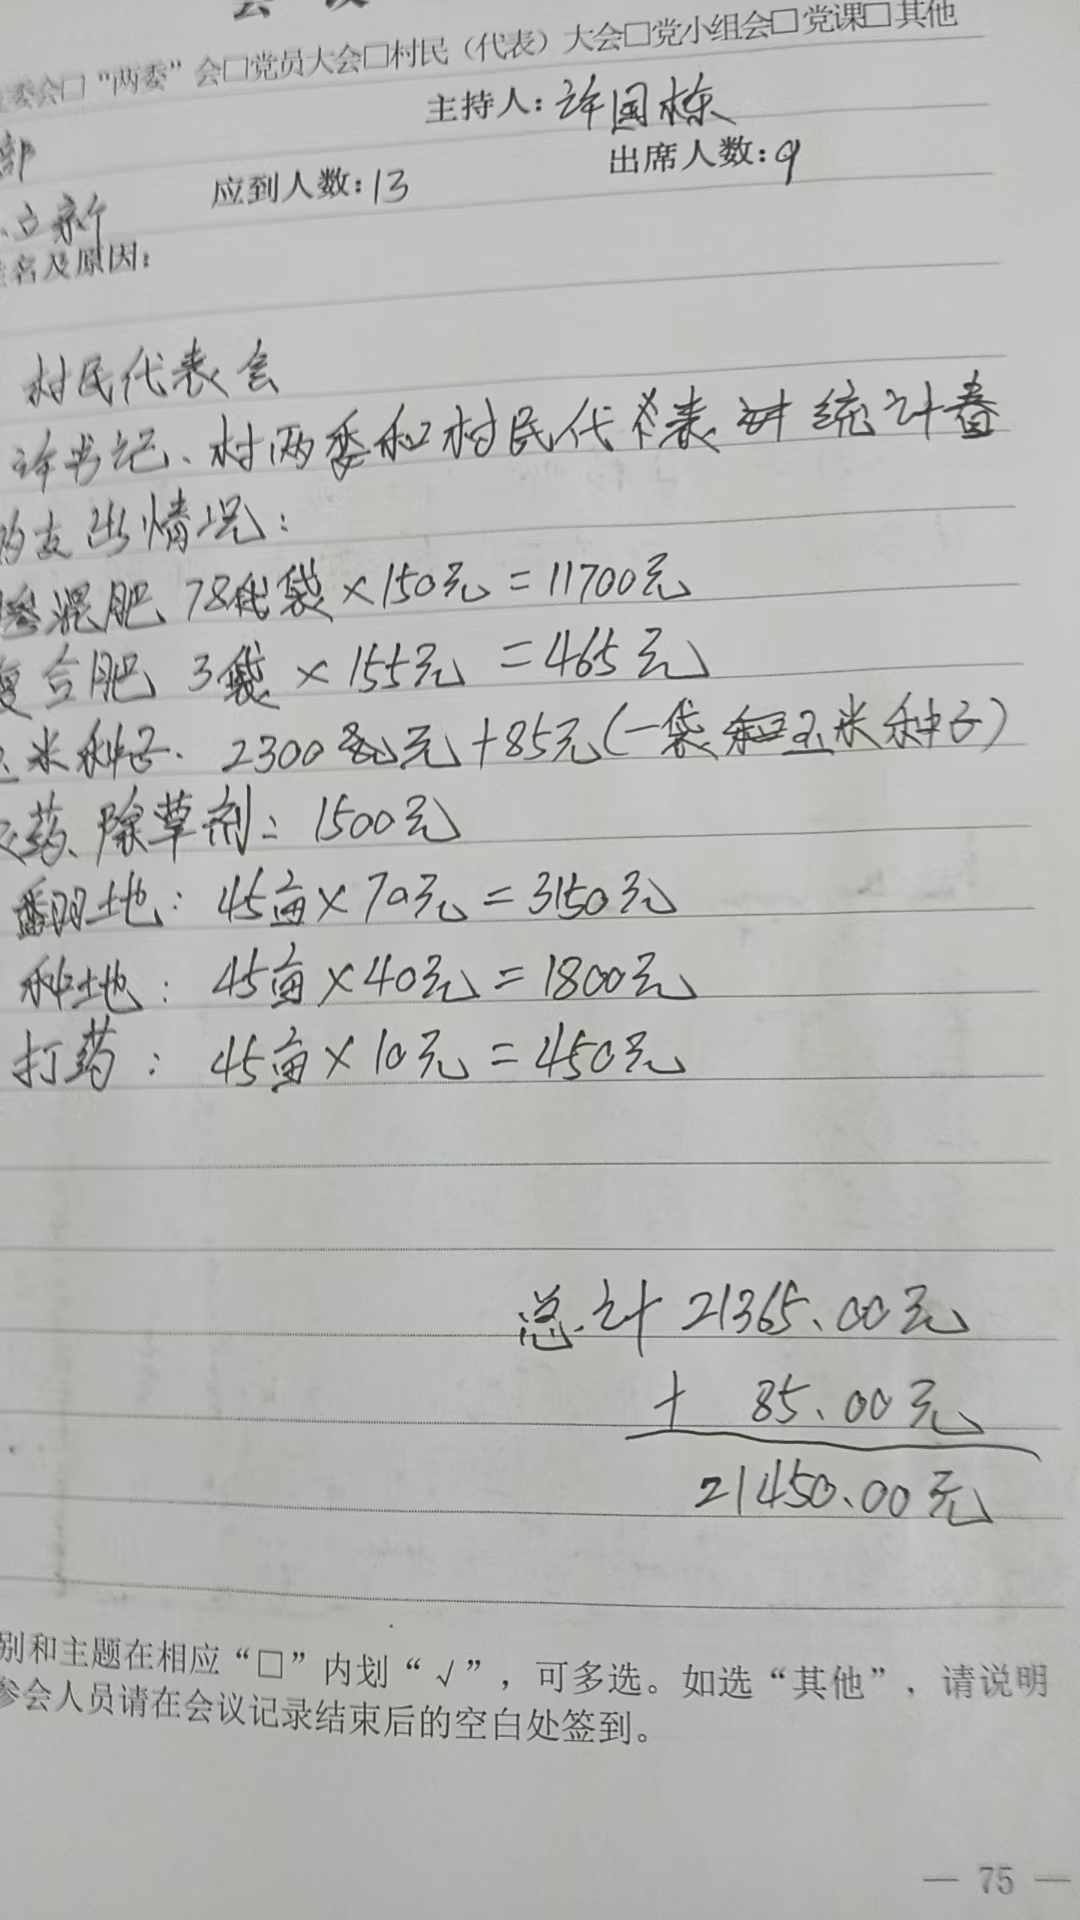 会 议
委会□“两委”会□党员大会□村民（代表）大会□党小组会□党课□其他
部 主持人：许国栋
立新 应到人数：13 出席人数：9
名及原因：
村民代表会
许书记、村两委和村民代表对统计春
的支出情况：
掺混肥 78袋×150元=11700元
复合肥 3袋×155元=465元
玉米种子. 2300元+85元(一袋玉米种子)
农药、除草剂：1500元
翻地：45亩×70元=3150元
种地：45亩×40元=1800元
打药：45亩×10元=450元
总计 21365.00元
+ 85.00元
21450.00元
别和主题在相应“□”内划“√”，可多选。如选“其他”，请说明
参会人员请在会议记录结束后的空白处签到。
— 75 —